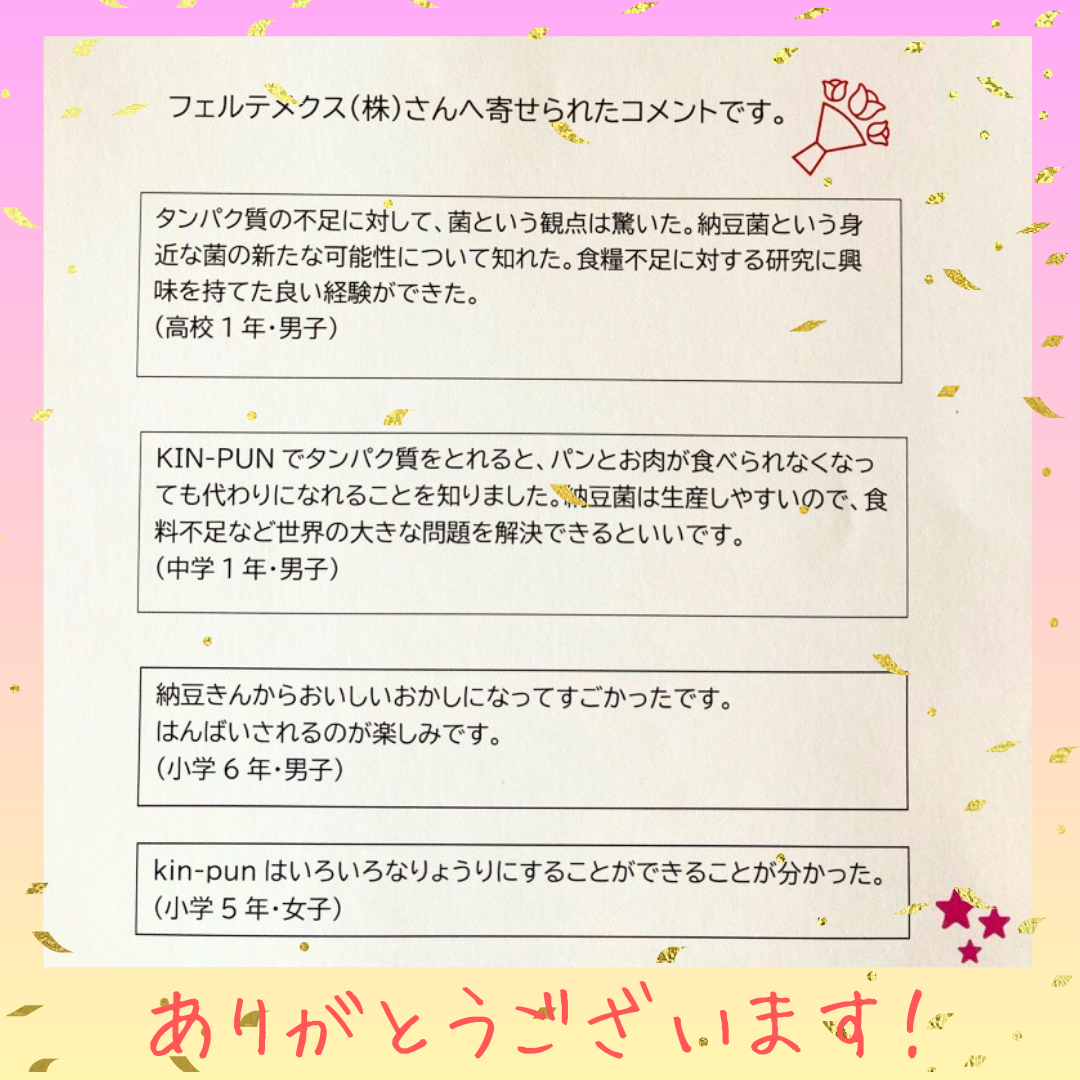 フェルテメクス(株)さんへ寄せられたコメントです。
タンパク質の不足に対して、菌という観点は驚いた。納豆菌という身
近な菌の新たな可能性について知れた。食糧不足に対する研究に興
味を持てた良い経験ができた。
(高校1年・男子)
KIN-PUNでタンパク質をとれると、パンとお肉が食べられなくなっ
ても代わりになれることを知りました。納豆菌は生産しやすいので、食
料不足など世界の大きな問題を解決できるといいです。
(中学1年・男子)
納豆きんからおいしいおかしになってすごかったです。
はんばいされるのが楽しみです。
(小学6年・男子)
kin-punはいろいろなりょうりにすることができることが分かった。
(小学5年・女子)
ありがとうございます!